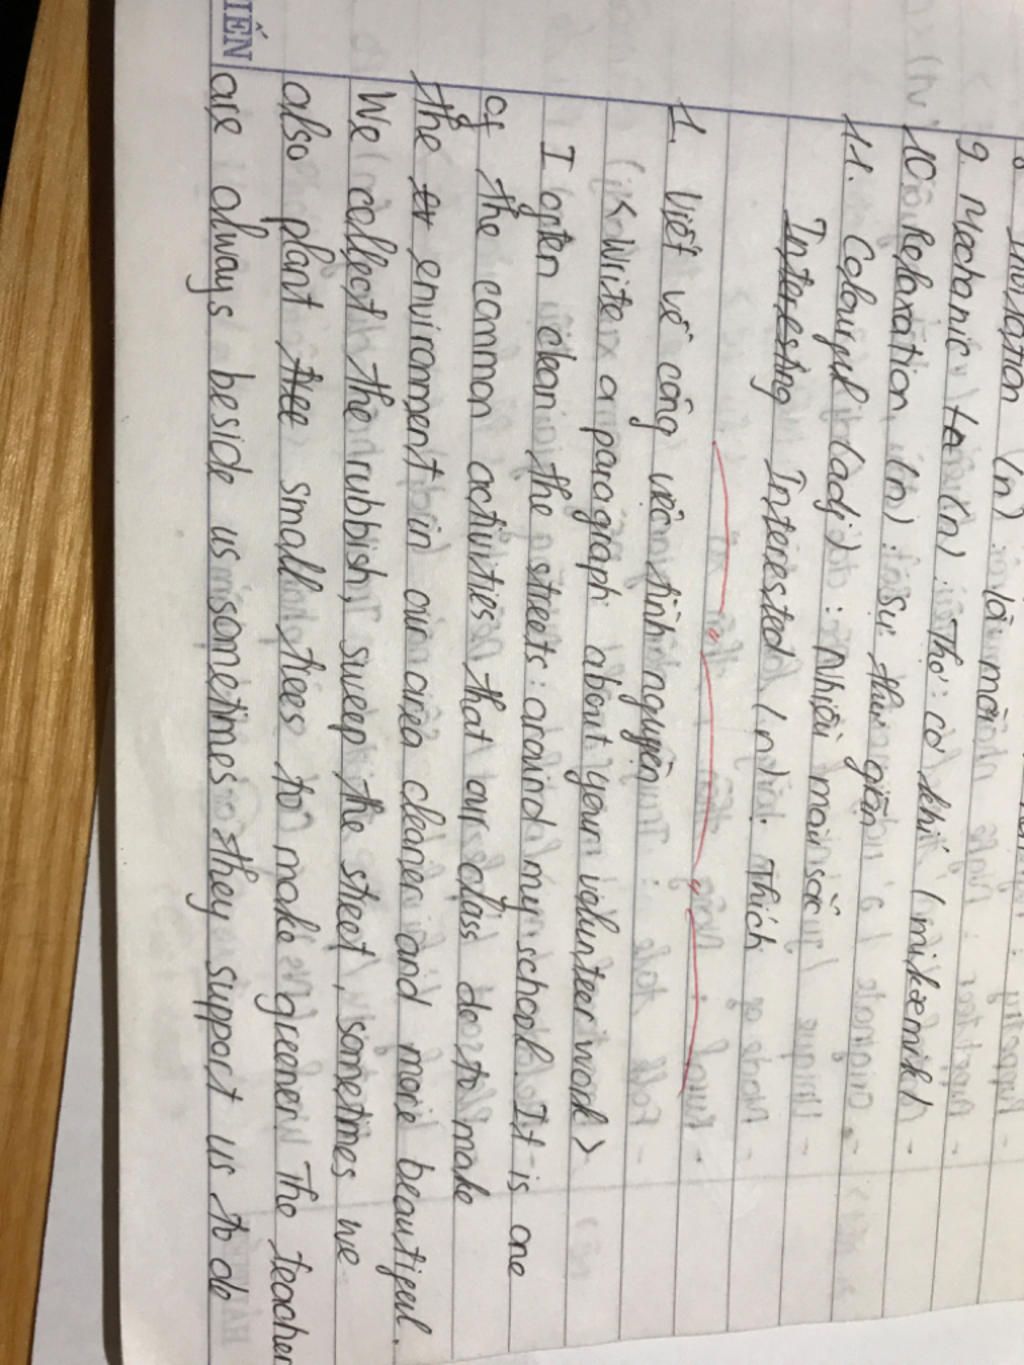 Invitation (n) là mời
9. Mechanic (n) : Thợ cơ khí (mikæmik)
10. Relaxation (n) : Sự thư giãn
11. Colourful (adj) : Nhiều màu sắc
Interesting Interested (n) : Thích
1. Viết về công việc tình nguyện
< Write a paragraph about your volunteer work >
I often clean the streets around my school. It is one
of the common activities that our class do to make
the ev environment in our area cleaner and more beautiful.
We collect the rubbish, sweep the street, sometimes we
also plant tree small trees to make greener The teacher
are always beside us sometimes they support us to do
IẾN